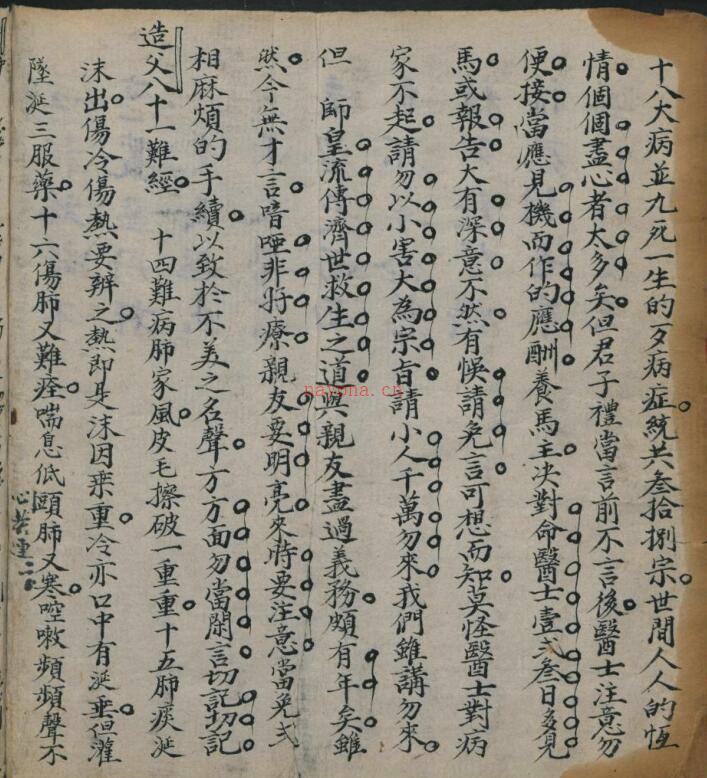 十八大病並九死一生的歹病症統共叁拾捌宗世間人人的恆
情個個盡心者太多矣但君子禮當言前不言後醫士注意勿
便接當應見機而作的應酬養馬主决對命醫士壹弍叁日多見
馬或報告大有深意不然有悮請免言可想而知莫怪醫士對病
家不起請勿以小害大為宗旨請小人千萬勿來我們雖講勿來
但 師皇流傳濟世救生之道與親友盡過義務頗有年矣雖
然今無才言喑啞非好療親友要明亮來時要注意當免弍
相麻煩的手續以致於不美之名聲方方面勿當閑言切記切記
造父八十一難經 十四難病肺家風皮毛擦破一重重十五肺痰涎
沫出傷冷傷熱要辨之熱即是沫因乘重冷亦口中有涎垂但灌
墜涎三服藥十六傷肺又難痊喘息低頭肺又寒啌嗽頻頻聲不
nayona.cn